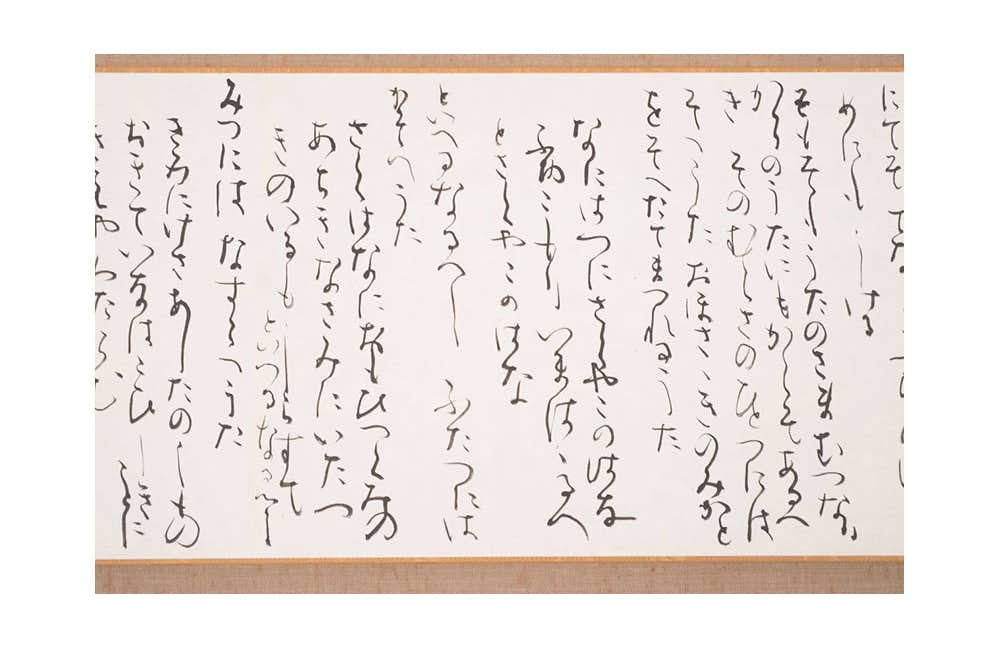 にてそ てならふひとのはし
めにもしける
そもそもうたのさまむつなり
からのうたにもかくそあるへ
き そのむくさのひとつには
そへうた おほささきのみかと
をそへたてまつれるうた
なにはつにさくやこのはな
ふゆこもり いまははるへ
とさくやこのはな
といへるなるへし ふたつには
かそへうた
さくはなにおもひつくみの
あちきなさみにいたつ
きのいるもしらすて
といへるなるへし
みつには なすらへうた
きみにけさあしたのしもの
おきていなはこひしきことに
きえやわたらむ